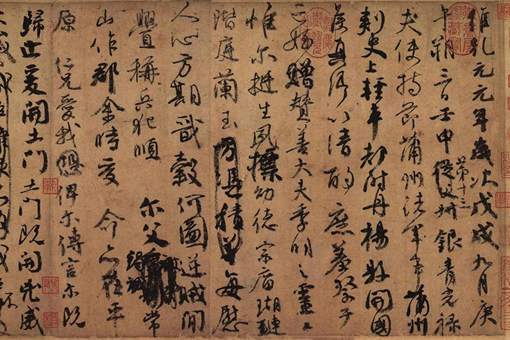 維乾元元年歲次戊戌九月庚
午朔三日壬申第十三從父叔銀青光祿
夫使持節蒲州諸軍事蒲州
刺史上輕車都尉丹楊縣開國
侯真卿以清酌庶羞祭于
亡姪贈贊善大夫季明之靈曰
惟爾挺生夙標幼德宗廟瑚璉
階庭蘭玉方憑積善每慰
人心方期戩穀何圖逆賊閒
釁稱兵犯順爾父竭誠常
山作郡余時受命亦在平
原仁兄愛我恐俾爾傳言爾既
歸止爰開土門土門既開凶威